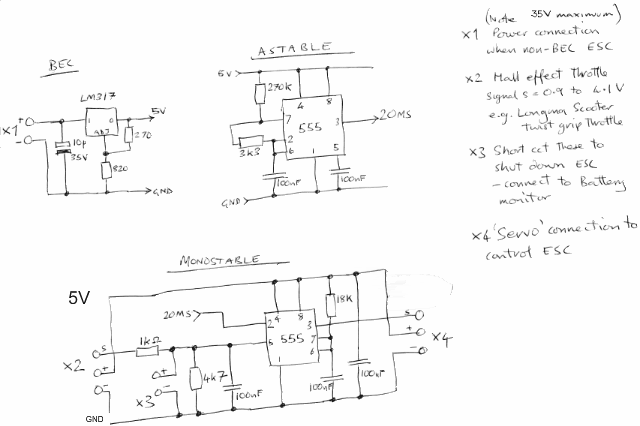 BEC
LM317
I
O
ADJ
5V
x1
+
-
10µ
35V
270
820
GND
ASTABLE
5V
270k
4
8
7
555
3
20MS
3k3
2
6
1
5
100nF
100nF
GND
(Note 35V maximum)
x1 Power connection
when non-BEC ESC
x2 Hall effect Throttle
signal s = 0.9 to 4.1V
e.g. Longma Scooter
twist grip Throttle
x3 Short cct these to
shut down ESC
- connect to Battery
monitor
x4 'Servo' connection to
control ESC
MONOSTABLE
5V
20MS
18K
4
8
2
555
3
5
7
6
1
1kΩ
x2
S
+
-
x3
+
-
4k7
100nF
100nF
100nF
S
+
-
x4
GND